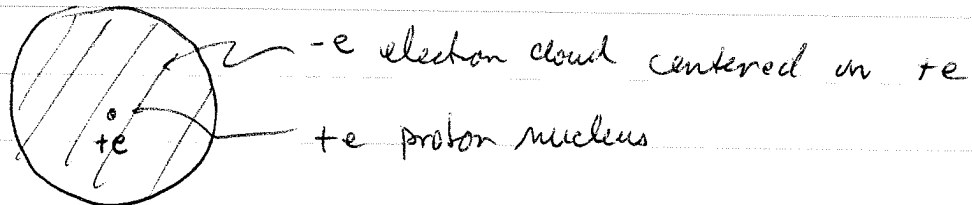 -e electron cloud centered on +e
+e
+e proton nucleus